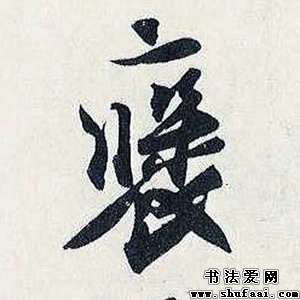 癢
书法爱网
www.shufaai.com